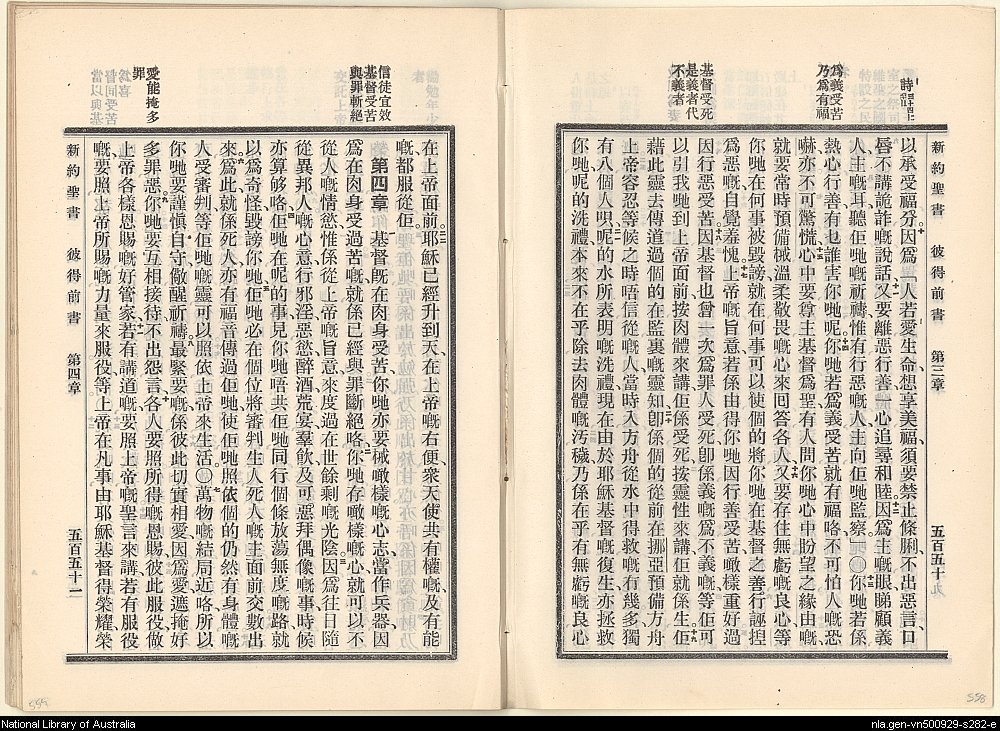 新約聖書 彼得前書 第三章 五百五十九
時
爲義受苦
乃爲有福
基督受死
是義者代
不義者
以承受福分因爲人若愛生命想享美福須要禁止條脷不出惡言口
唇不講詭詐嘅說話又要離惡行善一心追尋和睦因爲主嘅眼睇顧義
人主嘅耳聽佢哋嘅祈禱惟有行惡嘅人主向佢哋監察○你哋若係
熱心行善有乜誰害你哋呢你哋若爲義受苦就有福咯不可怕人嘅恐
嚇亦不可驚慌心中要尊主基督爲聖有人問你哋心中盼望之緣由嘅
就要常時預備械溫柔敬畏嘅心來回答各人又要存住無虧嘅良心等
你哋在何事被毀謗就在何事可以使個的將你哋在基督之善行誣揑
爲惡嘅自覺羞愧上帝嘅旨意若係由得你哋因行善受苦噉樣重好過
因行惡受苦因基督也曾一次爲罪人受死卽係義嘅爲不義嘅等佢可
以引我哋到上帝面前按肉體來講佢係受死按靈性來講佢就係生佢
藉此靈去傳道過個的在監裏嘅靈知卽係個的從前在挪亞預備方舟
上帝容忍等候之時唔信從嘅人當時入方舟從水中得救嘅有幾多獨
有八個人唄呢的水所表明嘅洗禮現在由於耶穌基督嘅復生亦拯救
你哋呢的洗禮本來不在乎除去肉體嘅汚穢乃係在乎有無虧嘅良心
信徒宜效
基督受苦
與罪斬絕
愛能掩多
罪
在上帝面前耶穌已經升到天在上帝嘅右便衆天使共有權嘅及有能
嘅都服從佢
第四章 基督旣在肉身受苦你哋亦要械噉樣嘅心志當作兵器因
爲在肉身受過苦嘅就係已經與罪斷絕咯你哋存噉樣嘅心就可以不
從人嘅情慾惟係從上帝嘅旨意來度過在世餘剩嘅光陰因爲往日隨
從異邦人嘅心意行邪淫惡慾醉酒荒宴羣飲及可惡拜偶像嘅事時候
亦算够咯佢哋在呢的事見你哋唔共佢哋同行個條放蕩無度嘅路就
以爲奇怪毀謗你哋佢哋必在個位將審判生人死人嘅主面前交數出
來爲此就係死人亦有福音傳過佢哋使佢哋照依個的仍然有身體嘅
人受審判等佢哋嘅靈可以照依上帝來生活○萬物嘅結局近咯所以
你哋要謹愼自守儆醒祈禱最緊要嘅係彼此切實相愛因爲愛遮掩好
多罪惡你哋要互相接待不出怨言各人要照所得嘅恩賜彼此服役做
上帝各樣恩賜嘅好管家若有講道嘅要照上帝嘅聖言來講若有服役
嘅要照上帝所賜嘅力量來服役等上帝在凡事由耶穌基督得榮耀榮
新約聖書 彼得前書 第四章 五百五十一
559
558
National Library of Australia
nla.gen-vn500929-s282-e